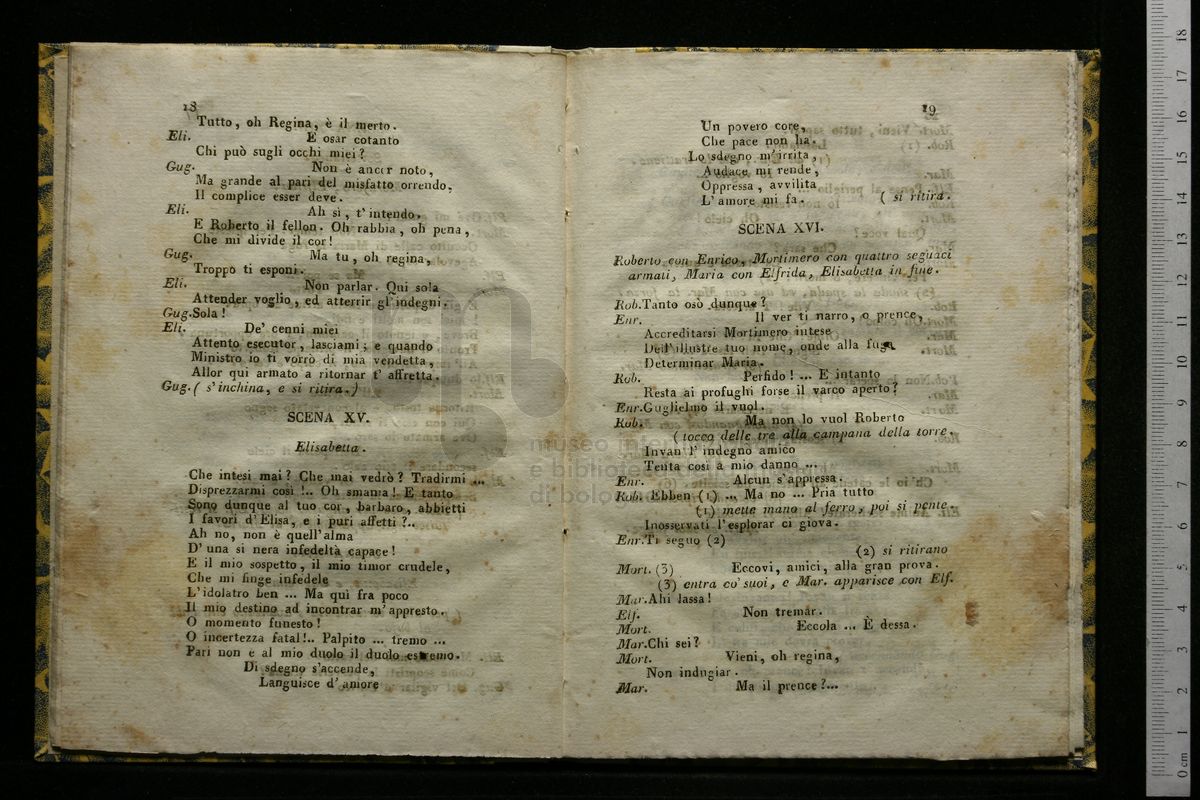 18
Tutto, oh Regina, è il merto.
Eli. E osar cotanto
Chi può sugli occhi miei?
Gug. Non è ancor noto,
Ma grande al pari del misfatto orrendo,
Il complice esser deve.
Eli. Ah sì, t' intendo.
E Roberto il fellon. Oh rabbia, oh pena,
Che mi divide il cor!
Gug. Ma tu, oh regina,
Troppo ti esponi.
Eli. Non parlar. Qui sola
Attender voglio, ed atterrir gl'indegni.
Gug. Sola!
Eli. De' cenni miei
Attento esecutor, lasciami; e quando
Ministro io ti vorrò di mia vendetta,
Allor qui armato a ritornar t' affretta.
Gug. ( s'inchina, e si ritira.)
SCENA XV.
Elisabetta.
Che intesi mai? Che mai vedrò? Tradirmi ...
Disprezzarmi così !.. Oh smania! E tanto
Sono dunque al tuo cor, barbaro, abbietti
I favori d'Elisa, e i puri affetti ?..
Ah no, non è quell'alma
D' una sì nera infedeltà capace!
E il mio sospetto, il mio timor crudele,
Che mi finge infedele
L' idolatro ben ... Ma qui fra poco
Il mio destino ad incontrar m' appresto.
O momento funesto!
O incertezza fatal!.. Palpito ... tremo ...
Pari non è al mio duolo il duolo estremo.
Di sdegno s'accende,
Languisce d' amore
19
Un povero core,
Che pace non ha.
Lo sdegno m'irrita,
Audace mi rende,
Oppressa, avvilita
L' amore mi fa. ( si ritira.
SCENA XVI.
Roberto con Enrico, Mortimero con quattro seguaci
armati, Maria con Elfrida, Elisabetta in fine.
Rob. Tanto osò dunque?
Enr. Il ver ti narro, o prence,
Accreditarsi Mortimero intese
Dell'illustre tuo nome, onde alla fuga
Determinar Maria.
Rob. Perfido! ... E intanto
Resta ai profughi forse il varco aperto?
Enr. Guglielmo il vuol.
Rob. Ma non lo vuol Roberto
( tocco delle tre alla campana della torre.
Invan l' indegno amico
Tenta così a mio danno ...
Enr. Alcun s'appressa.
Rob. Ebben (1) ... Ma no ... Pria tutto
(1) mette mano al ferro, poi si pente.
Inosservati l'esplorar ci giova.
Enr. Ti seguo (2)
(2) si ritirano
Mort. (3) Eccovi, amici, alla gran prova.
(3) entra co' suoi, e Mar. apparisce con Elf.
Mar. Ahi lassa!
Elf. Non tremar.
Mort. Eccola ... È dessa.
Mar. Chi sei?
Mort. Vieni, oh regina,
Non indugiar.
Mar. Ma il prence ?...
museo inter
e bibliote
di bolo
0 cm 1 2 3 4 5 6 7 8 9 10 11 12 13 14 15 16 17 18